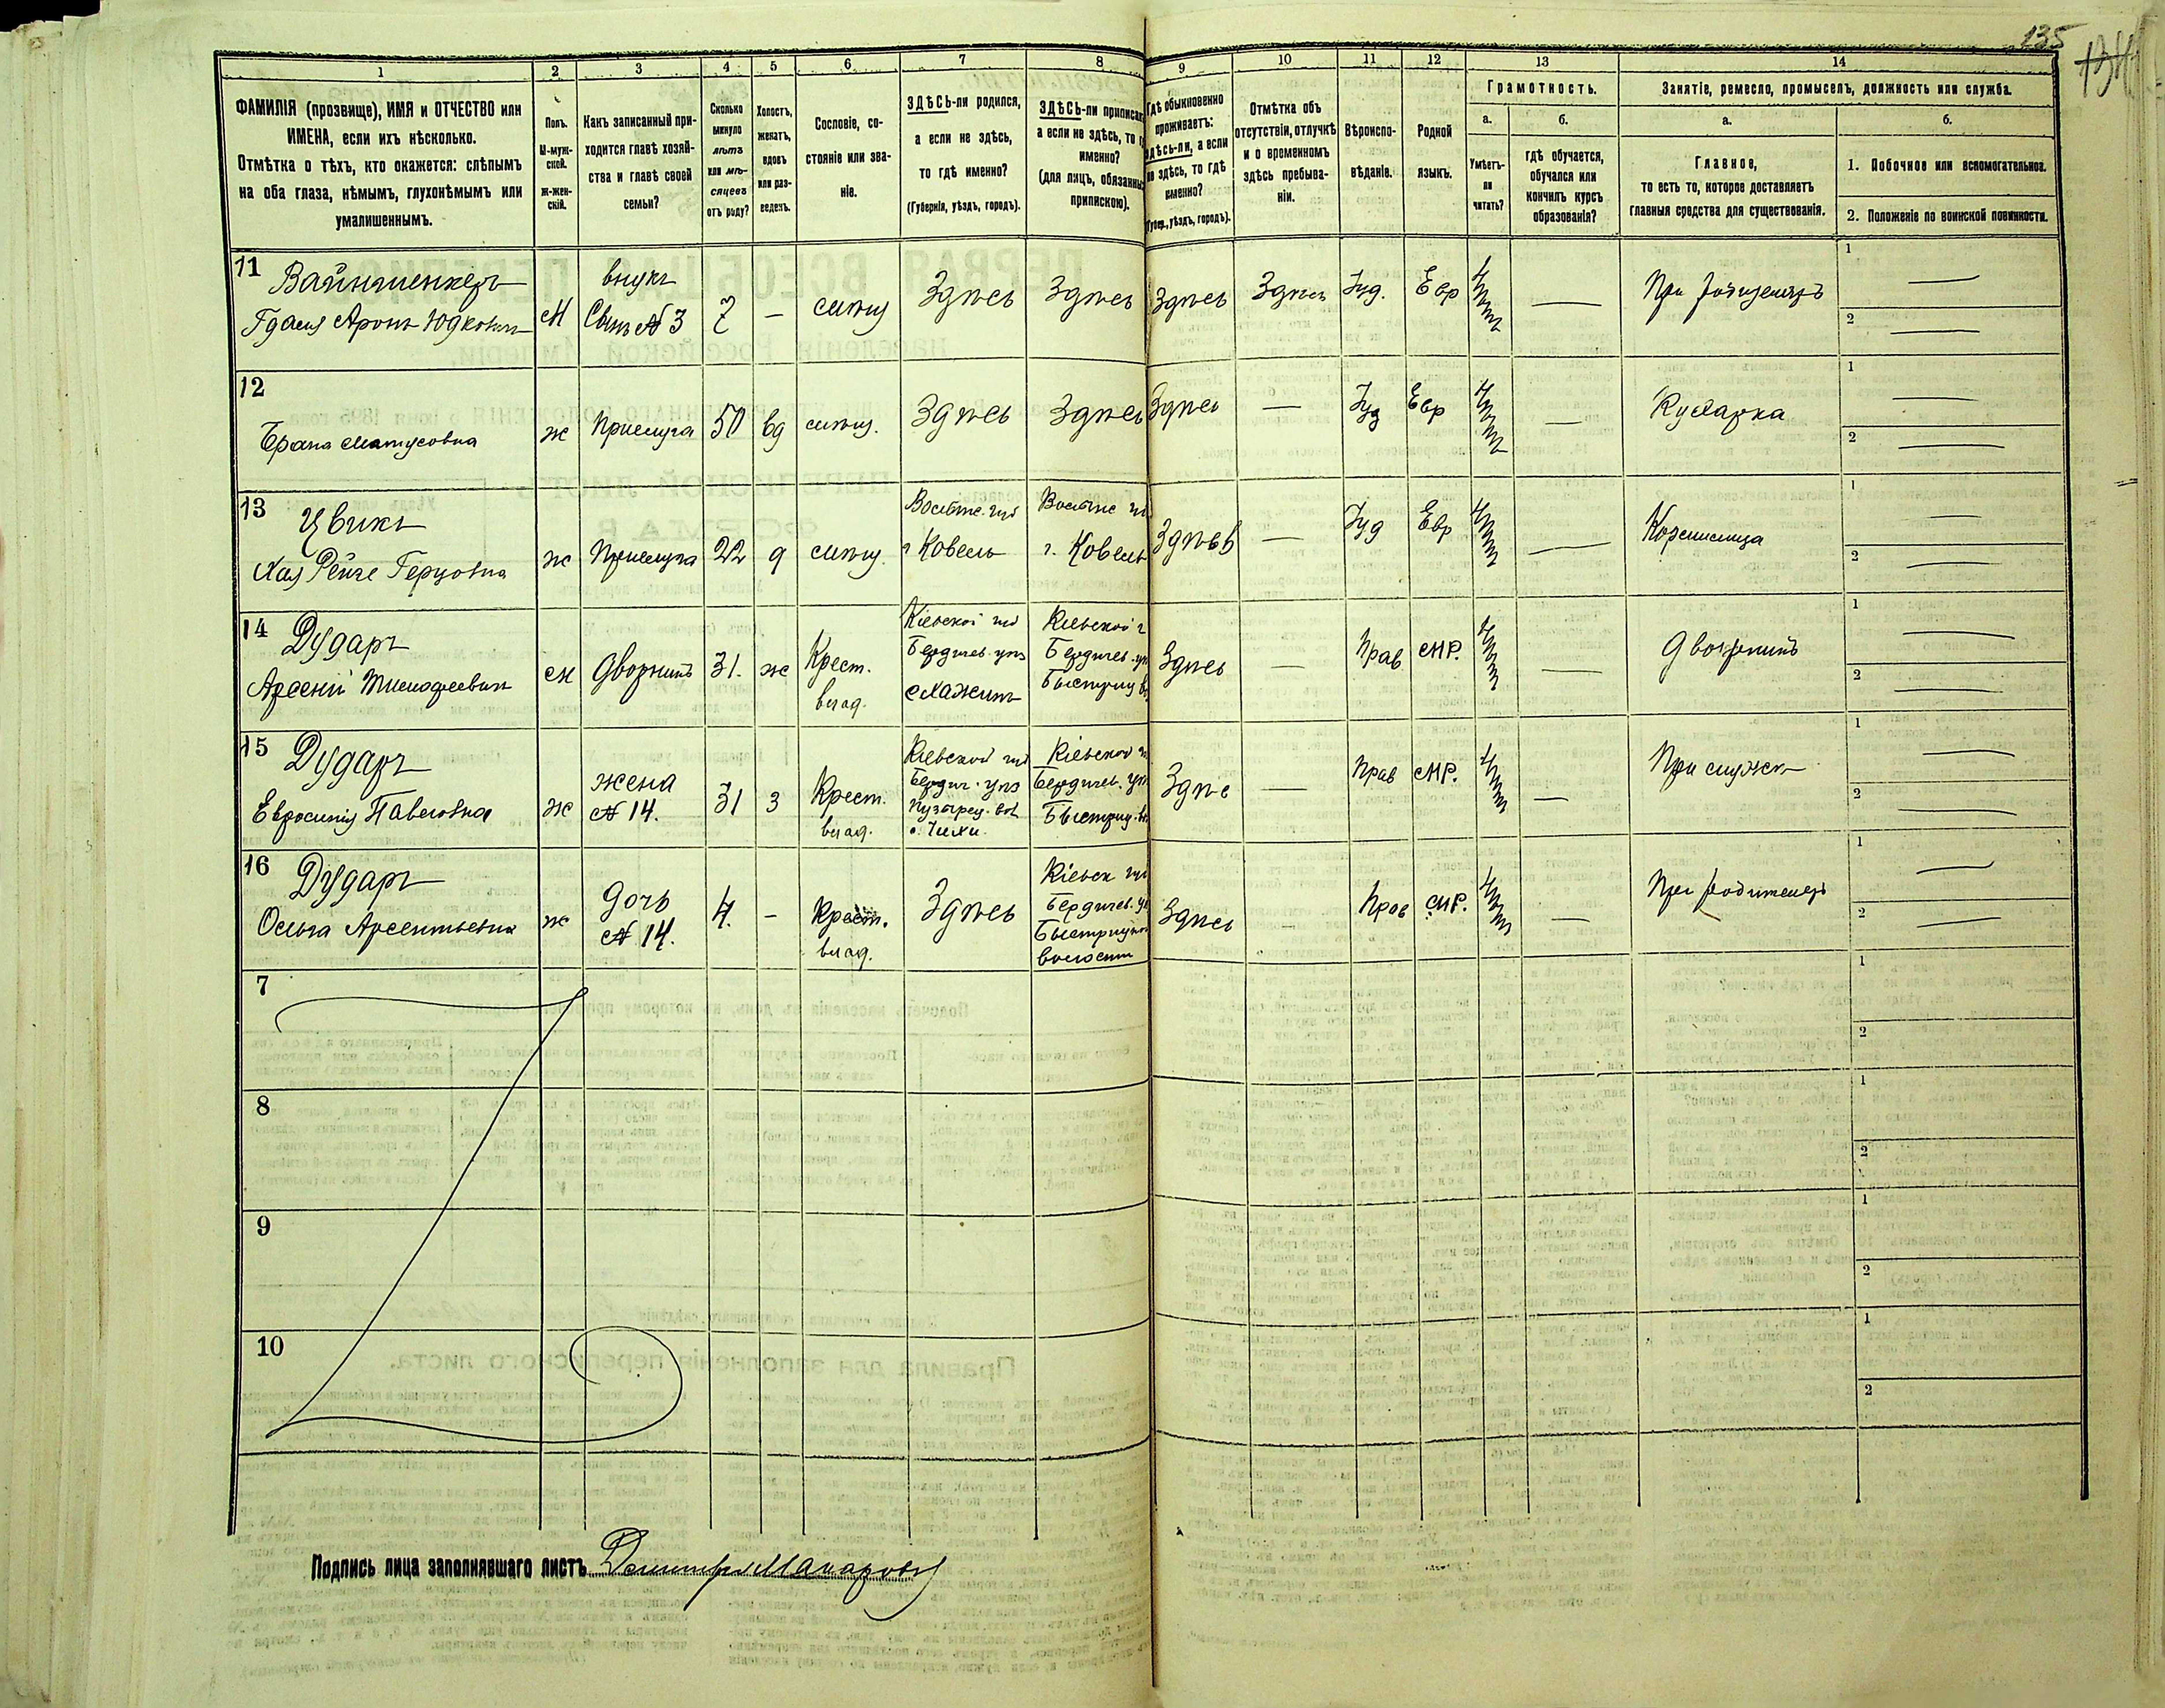 135
134
1 2 3 4 5 6 7 8 9 10 11 12 13 14
ФАМИЛІЯ (прозвище), ИМЯ и ОТЧЕСТВО или
ИМЕНА, если ихъ нѣсколько.
Отмѣтка о тѣхъ, кто окажется: слѣпымъ
на оба глаза, нѣмымъ, глухонѣмымъ или
умалишеннымъ.
Полъ.
М-муж-
ской.
ж-жен-
скій.
Какъ записанный при-
ходится главѣ хозяй-
ства и главѣ своей
семьи?
Сколько
минуло
лѣтъ
или мѣ-
сяцевъ
отъ роду?
Холостъ,
женатъ,
вдовъ
или раз-
веденъ.
Сословіе, со-
стояніе или зва-
ніе.
ЗДѢСЬ-ли родился,
а если не здѣсь,
то гдѣ именно?
(Губернія, уѣздъ, городъ).
ЗДѢСЬ-ли приписанъ
а если не здѣсь, то г
именно?
(для лицъ, обязанны
припискою).
Гдѣ обыкновенно
проживаетъ:
здѣсь-ли, а если
не здѣсь, то гдѣ
именно?
Губер., уѣздъ, городъ).
Отмѣтка объ
отсутствіи, отлучкѣ
и о временномъ
здѣсь пребыва-
ніи.
Вѣроиспо-
вѣданіе.
Родной
языкъ.
Грамотность.
а.
Умѣетъ-
ли
читать?
б.
гдѣ обучается,
обучался или
кончилъ курсъ
образованія?
Занятіе, ремесло, промыселъ, должность или служба.
а.
Главное,
то есть то, которое доставляетъ
главныя средства для существованія.
б.
1. Побочное или вспомогательное.
2. Положеніе по воинской повинности.
11 Вайншенкеръ
Гдаля Аронъ Юдковичъ М внукъ
Сынъ № 3 7 — мѣщ Здѣсь Здѣсь Здѣсь Здѣсь Іуд. Евр — При родителяхъ 1 — 2 —
12
Брана Матусовна ж Прислуга 50 вд мѣщ. Здѣсь Здѣсь Здѣсь — Іуд Евр — Кухарка 1 — 2 —
13 Цвикъ
Хая Рейзе Герцовна ж Прислуга 22 д мѣщ. г Ковель г. Ковель Здѣсь — Іуд Евр — 1 — 2 —
14 Дударъ
Арсеній м Дворникъ 31. ж Крест.
влад. Кіевской губ
Бердичев. уѣз Кіевской г
Бердичев. уѣ
Быстриц в Здѣсь — Прав МР. — Дворникъ 1 — 2 —
15 Дударъ
Евросинія Павловна ж жена
№ 14. 31 з Крест.
влад. Кіевской губ
Бердич. уѣз Кіевской г
Бердичев. уѣ
Быстриц. в Здѣс — Прав МР. — При мужѣ 1 — 2 —
16 Дударъ
Ольга Арсентьевна ж дочь
№ 14. 4. — Крест.
влад. Здѣсь Кіевск губ
Бердичев. у
волости Здѣсь — Прав МР. — При родителяхъ 1 — 2 —
7 1 2
8 1 2
9 1 2
10 1 2
Подпись лица заполнявшаго листъ